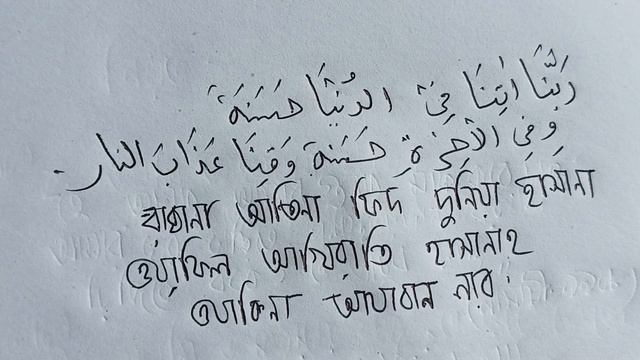 رَبَّنَا اٰتِنَا فِى الدُّنْيَا حَسَنَةً
وَفِى الْاٰخِرَةِ حَسَنَةً وَقِنَا عَذَابَ النار
রাব্বানা আতিনা ফিদ দুনিয়া হাসানা
ওয়াফিল আখিরাতি হাসানাহ
ওয়াকিনা আযাবান নার।